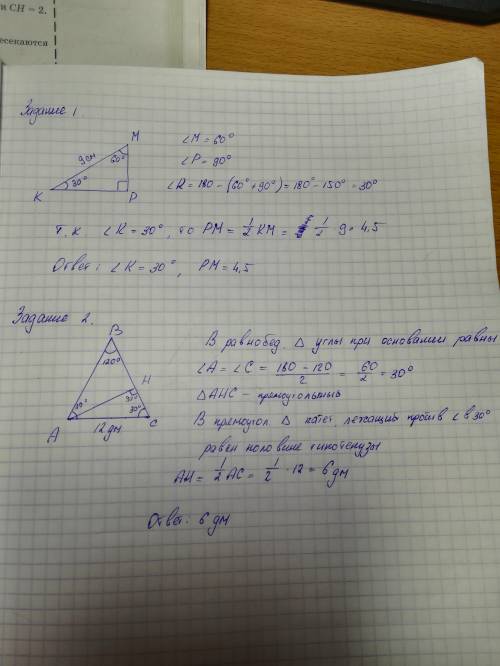 и CH = 2.
есекаются
Задание 1
M
9 см
60°
30°
K
P
∠M = 60°
∠P = 90°
∠K = 180 - (60° + 90°) = 180° - 150° = 30°
Т.к. ∠K = 30°, то PM = 1/2 KM = 1/2 · 9 = 4,5
Ответ: ∠K = 30°, PM = 4,5
Задание 2.
B
120°
H
30°
A
12 дм
C
В равнобед. △ углы при основании равны
∠A = ∠C = (180 - 120)/2 = 60/2 = 30°
△AHC - прямоугольный
В прямоугол. △ катет лежащий против ∠ в 30°
равен половине гипотенузы
AH = 1/2 AC = 1/2 · 12 = 6 дм
Ответ: 6 дм